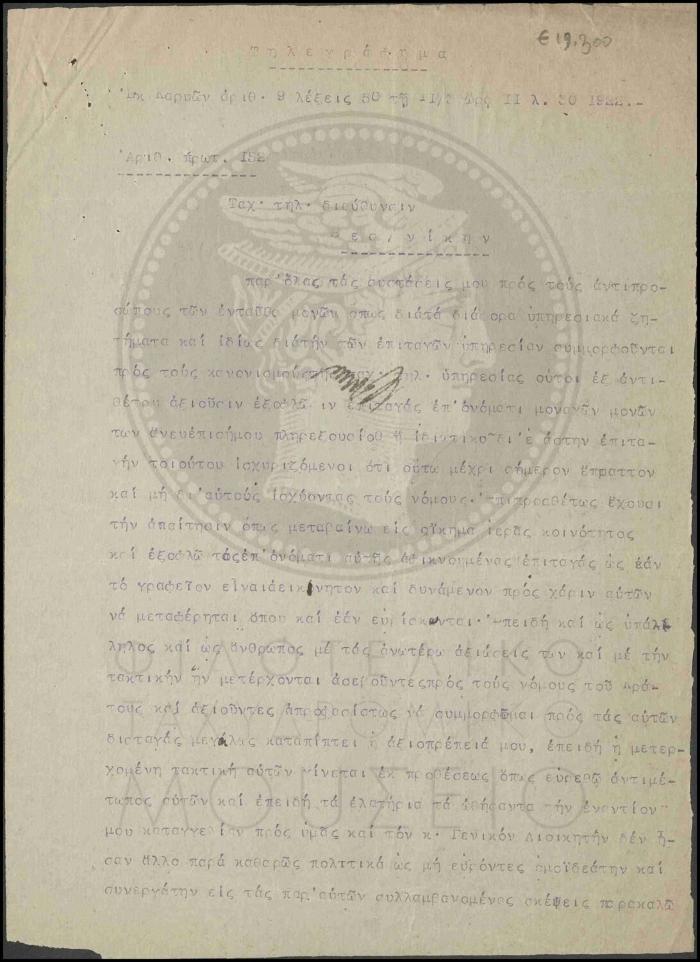 € 19.300
Τηλεγράφημα
Ἐκ Καρυῶν ἀριθ. 9 λέξεις 50 τῇ ὥρᾳ 11 λ. 30 1922.-
Ἀριθ. πρωτ. 152
Ταχ. τηλ. διεύθυνσιν
Θεσ/νίκην
παρ' ὅλας τάς συστάσεις μου πρός τούς ἀντιπρο-
σώπους τῶν ἐνταῦθα μονῶν ὅπως διατά διάφορα ὑπηρεσιακά ζη-
τήματα καί ἰδίως διατήν τῶν ἐπιταγῶν ὑπηρεσίαν συμμορφοῦνται
πρός τούς κανονισμούς τηλ. ὑπηρεσίας οὗτοι ἐξ ἀντι-
θέτου ἀξιοῦσιν ἐπιταγάς ἐπ' ὀνόματι μοναχῶν μονῶν
των ἄνευ ἐπισήμου πληρεξουσίου ἤ ἰδιωτικοῦ δι' ἑκάστην ἐπιτα-
γήν τοιούτου ἰσχυριζόμενοι ὅτι οὕτω μέχρι σήμερον ἔπραττον
καί μή δι' αὐτούς ἰσχύοντας τούς νόμους. Ἐπιπροσθέτως ἔχουσι
τήν ἀπαίτησιν ὅπως μεταβαίνω εἰς οἴκημα ἱερᾶς κοινότητος
καί ἐξοφλῶ τάς ἐπ' ὀνόματι αὐτῆς ἀφικνουμένας ἐπιταγάς ὡς ἐάν
τό γραφεῖον εἶναι ἀεικίνητον καί δυνάμενον πρός χάριν αὐτῶν
νά μεταφέρηται ὅπου καί ἐάν εὑρίσκωνται. Ἐπειδή καί ὡς ὑπάλ-
ληλος καί ὡς ἄνθρωπος μέ τάς ἀνωτέρω ἀξιώσεις των καί μέ τήν
τακτικήν ἥν μετέρχονται ἀσεβοῦντες πρός τούς νόμους τοῦ Κρά-
τους καί ἀξιοῦντες ἀπροφασίστως νά συμμορφῶμαι πρός τάς αὐτῶν
διαταγάς μεγάλως καταπίπτει ἡ ἀξιοπρέπειά μου, ἐπειδή ἡ μετερ-
χομένη τακτική αὐτῶν γίνεται ἐκ προθέσεως ὅπως εὑρεθῶ ἀντιμέ-
τωπος αὐτῶν καί ἐπειδή τά ἐλατήρια τά ὠθήσαντα τήν ἐναντίον
μου καταγγελίαν πρός ὑμᾶς καί τόν κ. Γενικόν Διοικητήν δέν ἦ-
σαν ἄλλο παρά καθαρῶς πολιτικά ὡς μή εὑρόντες ὁμοϊδεάτην καί
συνεργάτην εἰς τάς παρ' αὐτῶν συλλαμβανομένας σκέψεις παρακαλῶ
ΦΙΛΟΤΕΛΙΚΟ
ΜΟΥΣΕΙΟ